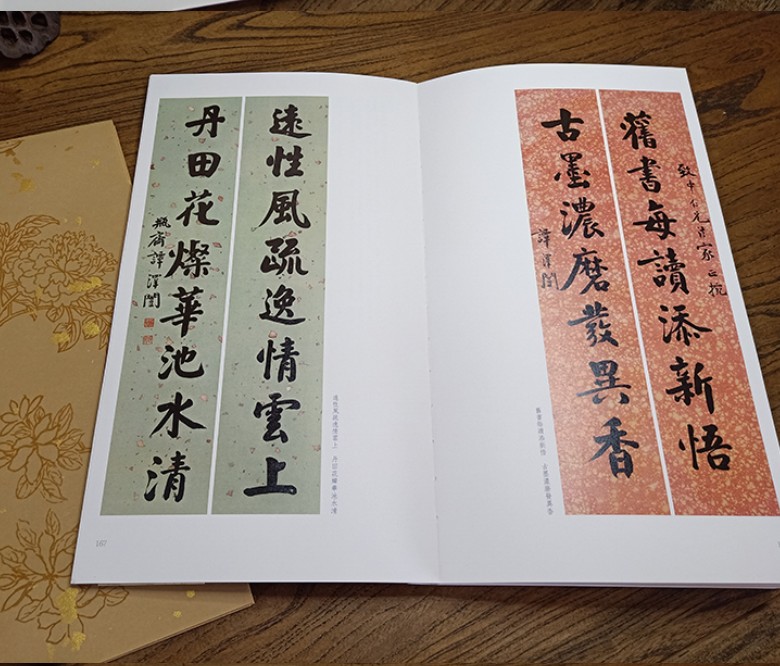 舊書每讀添新悟
致中仁兄
家正
古墨濃磨發異香
譚澤闓
舊書每讀添新悟 古墨濃磨發異香
遠性風疏逸情雲上
丹田花燦華池水清
瓶齋譚澤闓
遠性風疏逸情雲上 丹田花燦華池水清
167